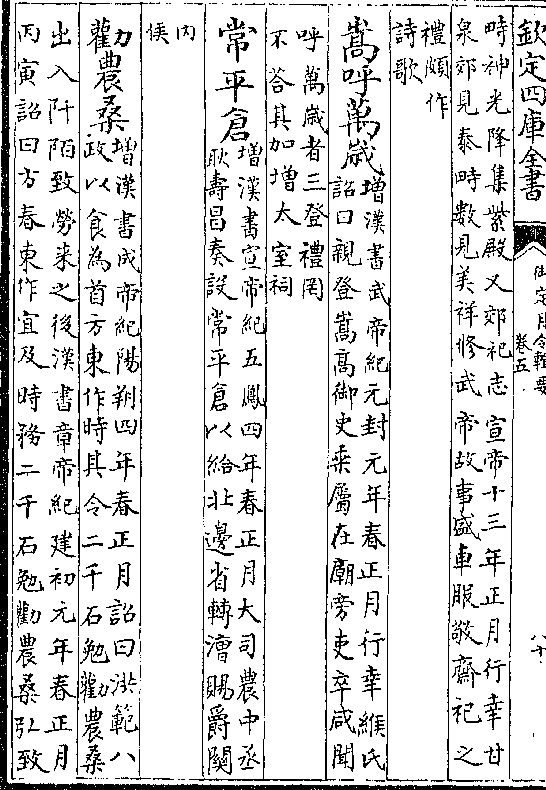 欽定四庫全書
御定月令輯要
卷五
八十
時神光降集紫殿又郊祀志宣帝十三年正月行幸甘
泉郊見泰畤數見美祥修武帝故事盛車服敬齋祀之
禮頗作
詩歌
嵩呼萬歲增漢書武帝紀元封元年春正月行幸緱氏
詔曰親登嵩高御史乘屬在廟旁吏卒咸聞
呼萬歲者三登禮罔
不答其加增太室祠
常平倉增漢書宣帝紀五鳳四年春正月大司農中丞
耿壽昌奏設常平倉以給北邊省轉漕賜爵關
内
侯
勸農桑增漢書成帝紀陽朔四年春正月詔曰洪範八
政以食為首方東作時其令二千石勉勸農桑
出入阡陌致勞来之後漢書章帝紀建初元年春正月
丙寅詔曰方春東作宜及時務二千石勉勸農桑弘致